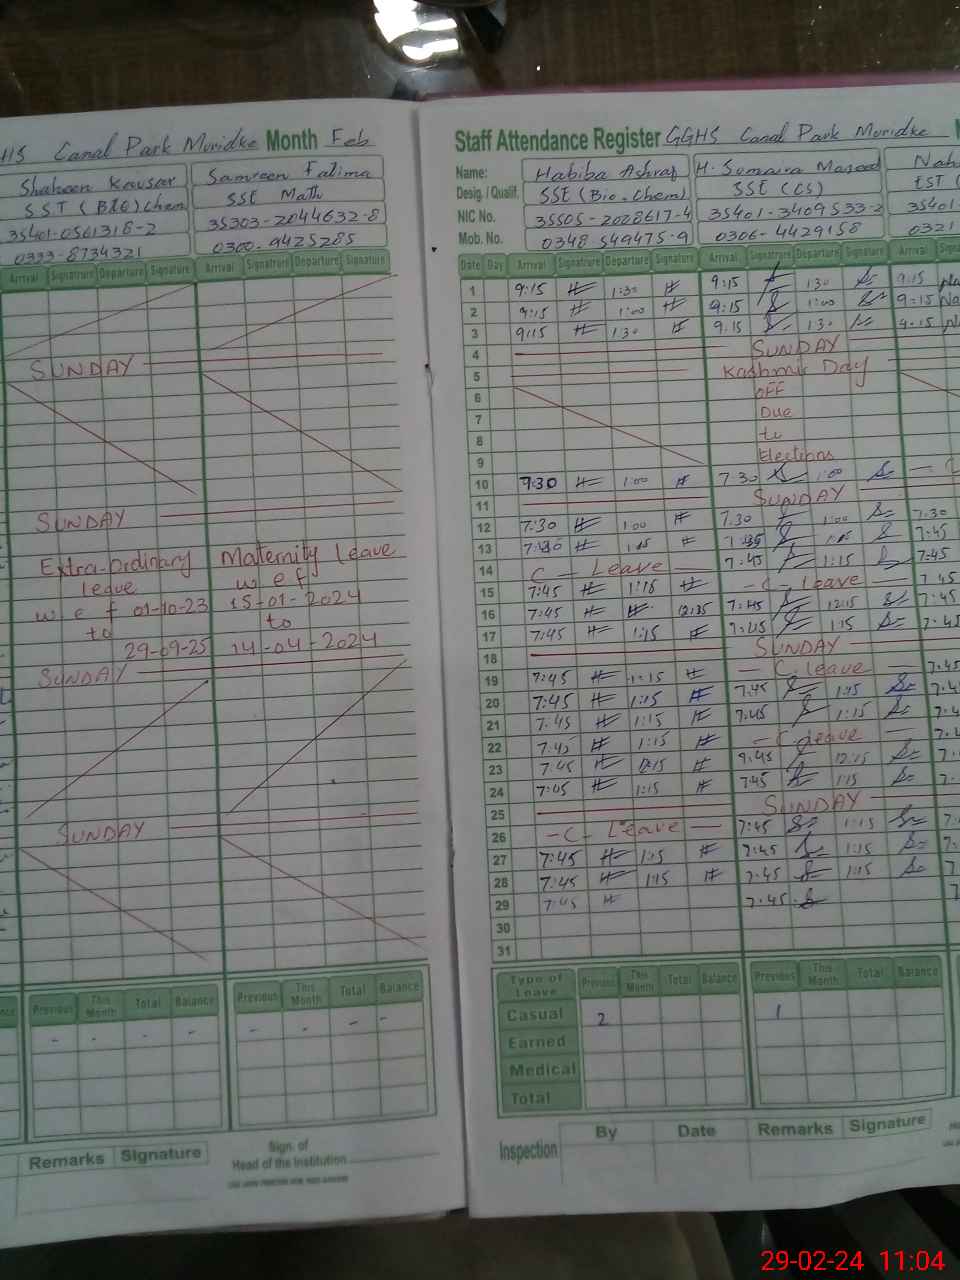 GHS Canal Park Muridke Month Feb
Shaheen Kausar Samreen Fatima
SST (Bio) Chem SSE Math
35401-0561318-2 35303-2044632-8
0333-8734321 0300-9425285
Arrival Signatrure Departure Signature Arrival Signatrure Departure Signature
SUNDAY
SUNDAY
Extra-ordinary Maternity Leave
leave w e f
w e f 01-10-23 15-01-2024
to to
29-09-25 14-04-2024
SUNDAY
SUNDAY
Previous This Month Total Balance Previous This Month Total Balance
- - - - - - - -
Remarks Signature
Sign. of
Head of the Institution
Staff Attendance Register GGHS Canal Park Muridke
Name: Habiba Ashraf H. Sumaira Masood Nah
Desig. / Qualif. SSE (Bio. Chem) SSE (CS) EST (
NIC No. 35505-2028617-4 35401-3409533-2 35401-
Mob. No. 0348-549475-9 0306-4429158 0321
Date Day Arrival Signatrure Departure Signature Arrival Signatrure Departure Signature Arrival
1 9:15 1:30 9:15 1:30 9:15
2 9:15 1:00 9:15 1:00 9:15
3 9:15 1:30 9:15 1:30 9:15
4 SUNDAY
5 Kashmir Day
6 OFF
7 Due
8 to
9 Elections
10 9:30 1:00 7:30 1:00 — C
11 SUNDAY
12 7:30 1:00 7:30 1:00 7:30
13 1:15 7:45
14 C - Leave — 7:45 1:15 7:45
15 7:45 1:15 - C - Leave — 7:45
16 7:45 12:15 7:45
17 7:45 1:15 7:45 1:15 7:45
18 SUNDAY
19 7:45 1:15 — C. leave — 7:45
20 7:45 1:15 7:45 1:15
21 7:45 1:15 7:45 1:15
22 7:45 1:15 - C. leave —
23 7:45 12:15 9:45 12:15
24 7:45 1:15 7:45 1:15
25 SUNDAY
26 - C - Leave — 7:45 1:15
27 7:45 1:15 7:45 1:15
28 7:45 1:15 7:45 1:15
29 7:45 7:45
30
31
Type of Leave Previous This Month Total Balance Previous This Month Total Balance
Casual 2 1
Earned
Medical
Total
Inspection By Date Remarks Signature
29-02-24 11:04